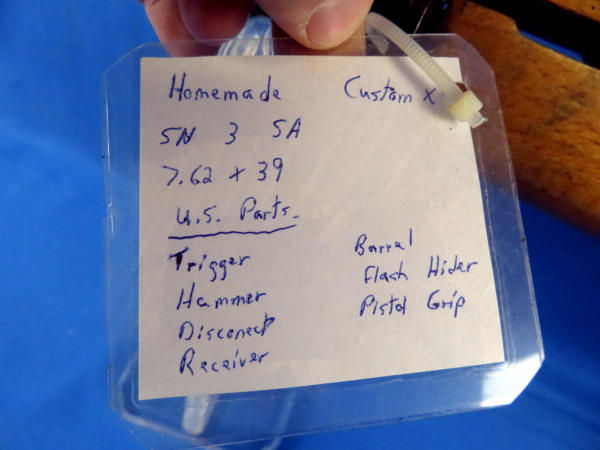 Homemade Custom X
SN 3 SA
7.62 x 39
U.S. Parts.
Trigger
Hammer
Disconect
Receiver
Barrel
Flash Hider
Pistol Grip